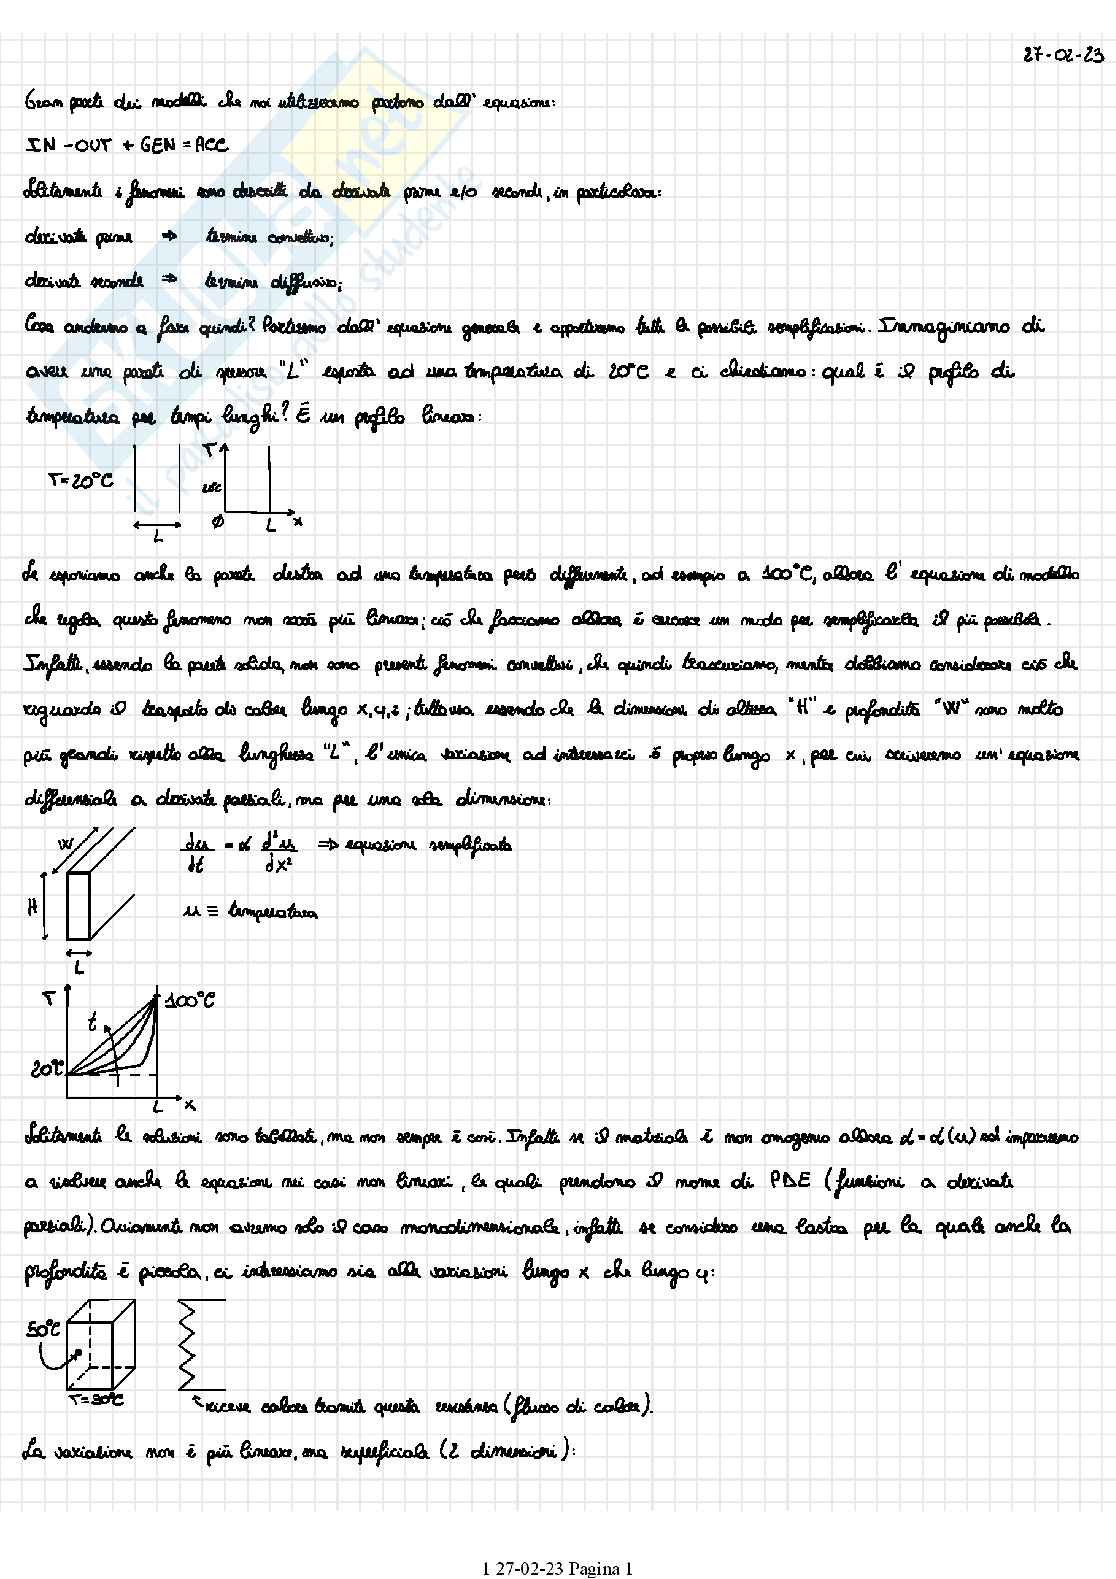 27-02-23
Gran parte dei modelli che noi utilizzeremo partono dall' equazione:
IN - OUT + GEN = ACC
Solitamente i fenomeni sono descritti da derivate prime e/o seconde, in particolare:
derivate prime ⇒ termine convettivo;
derivate seconde ⇒ termine diffusivo;
Cosa andremo a fare quindi? Partiremo dall' equazione generale e apporteremo tutte le possibili semplificazioni. Immaginiamo di
avere una parete di spessore "L" esposta ad una temperatura di 20°C e ci chiediamo: qual è il profilo di
temperatura per tempi lunghi? È un profilo lineare:
T=20°C
L
T
20°C
0 L x
Se esponiamo anche la parete destra ad una temperatura però differente, ad esempio a 100°C, allora l' equazione di modello
che regola questo fenomeno non sarà più lineare; ciò che facciamo allora è cercare un modo per semplificarla il più possibile.
Infatti, essendo la parete solida, non sono presenti fenomeni convettivi, che quindi trascuriamo, mentre dobbiamo considerare ciò che
riguarda il trasporto di calore lungo x,y,z; tuttavia essendo che le dimensioni di altezza "H" e profondità "W" sono molto
più grandi rispetto alla lunghezza "L", l'unica variazione ad interessarci è proprio lungo x, per cui scriveremo un' equazione
differenziale a derivate parziali, ma per una sola dimensione:
W
H
L
du/dt = α d²u/dx² ⇒ equazione semplificata
u ≡ temperatura
T
100°C
t
20°C
L x
Solitamente le soluzioni sono tabellate, ma non sempre è così. Infatti se il materiale è non omogeneo allora α = α(u) ed impareremo
a risolvere anche le equazioni nei casi non lineari, le quali prendono il nome di PDE (funzioni a derivate
parziali). Ovviamente non avremo solo il caso monodimensionale, infatti se considero una lastra per la quale anche la
profondità è piccola, ci interessiamo sia alle variazioni lungo x che lungo y:
50°C
T=30°C
riceve calore tramite questa resistenza (flusso di calore).
La variazione non è più lineare, ma superficiale (2 dimensioni):
1 27-02-23 Pagina 1